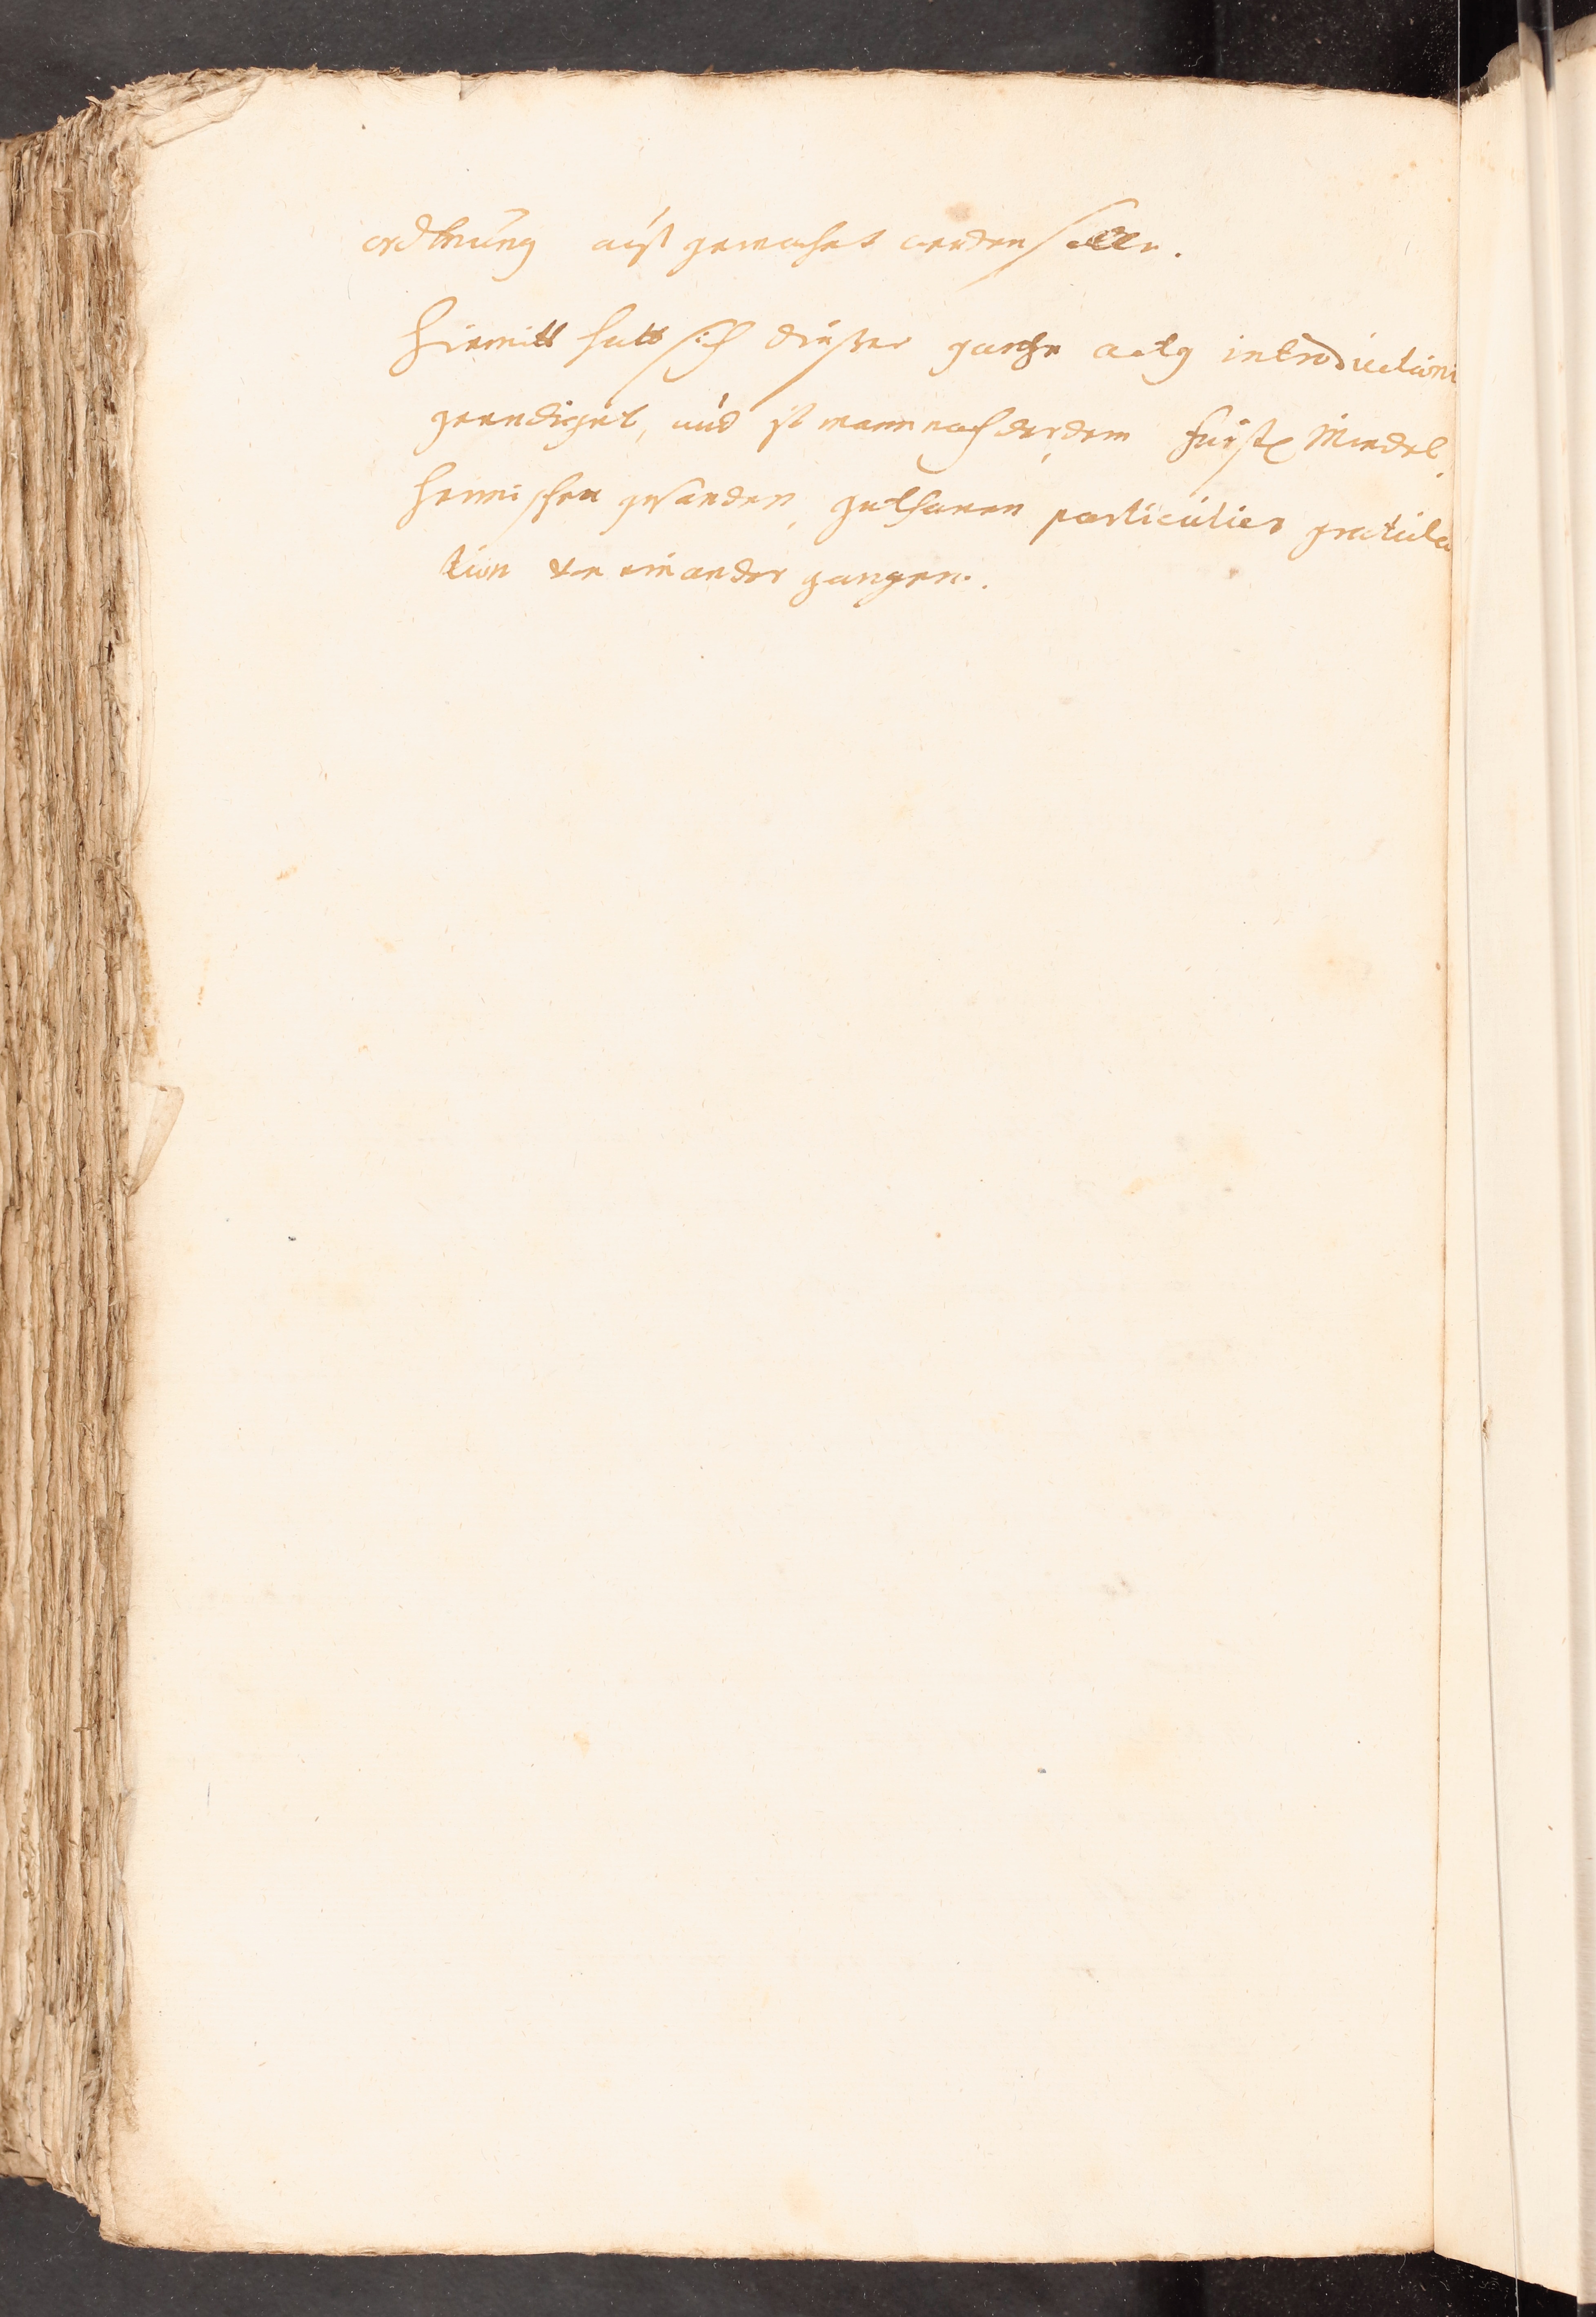 ordtnung auß gemachet werden solle.
Hiemitt hatt sich dießer gantze actus introductioni
geendiget, und ist mann nach der, dem fürstl Mindel,
heimischen gesanden, gethanen particulier gratula
tion von einander gangen.